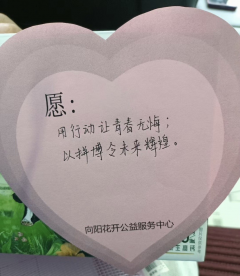 愿：
用行动让青春无悔；
以拼搏令未来辉煌。
向阳花开公益服务中心